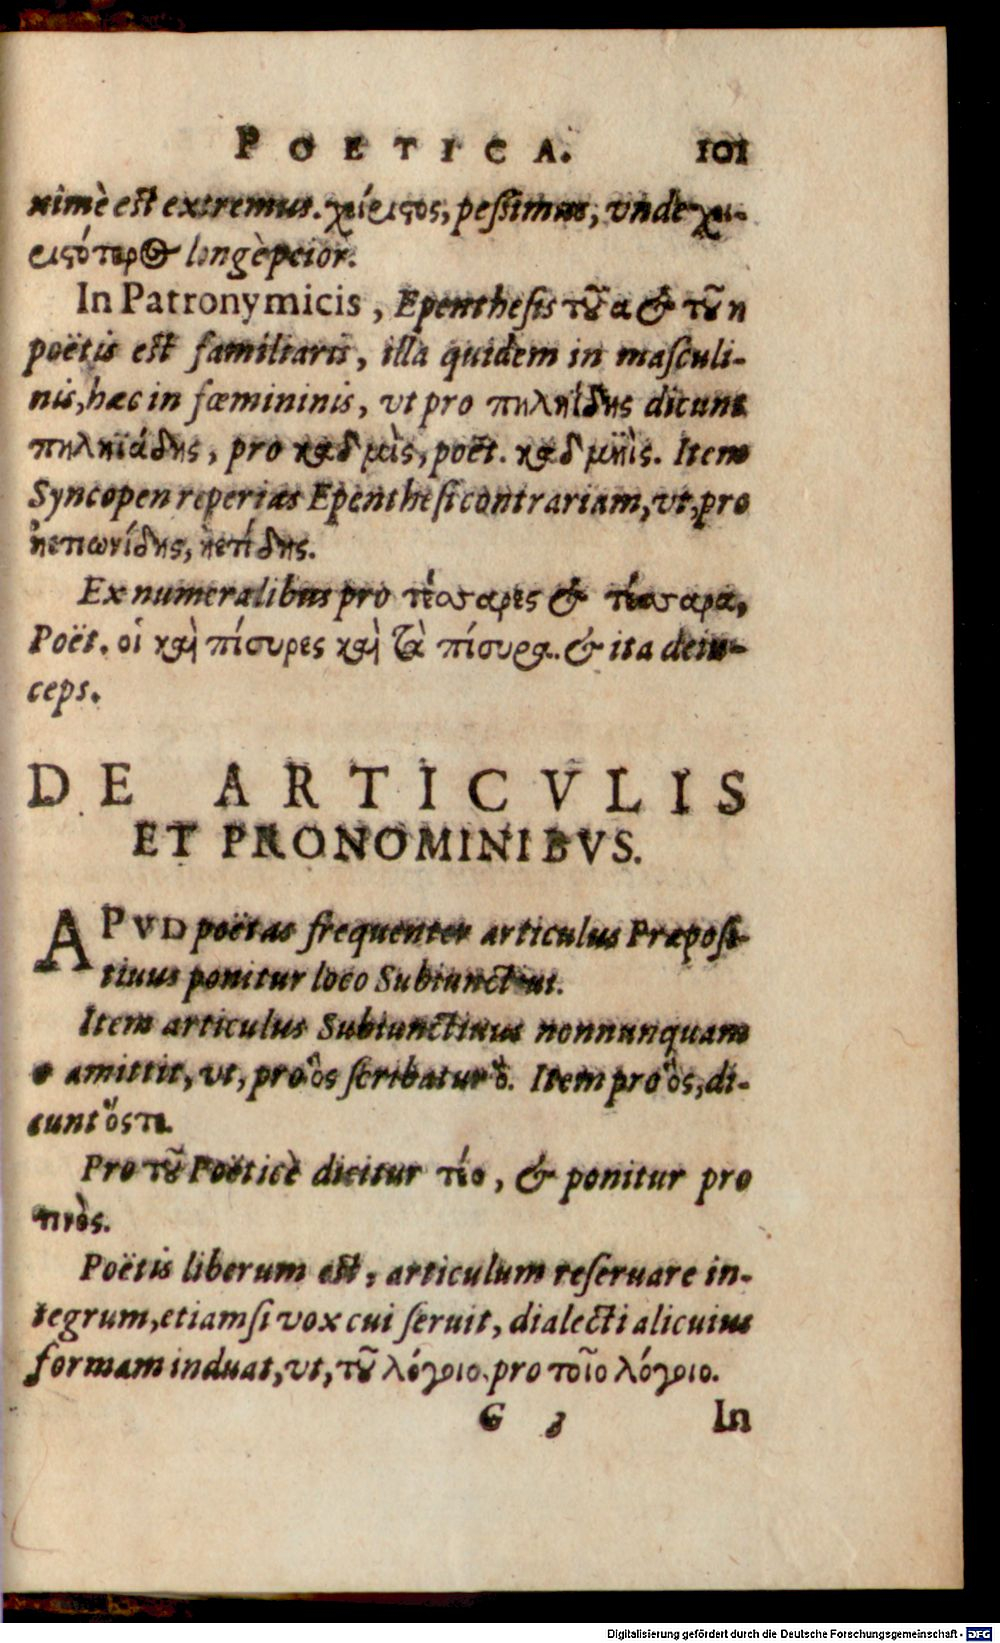 POETICA. 101
ximè est extremus. χείριστος, pessimus, vnde χει-
ριστότερος longè peior.
In Patronymicis, Epenthesis τοῦ α & τοῦ η
poëtis est familiaris, illa quidem in masculi-
nis, hæc in fœmininis, vt pro πηληΐδης dicunt
πηληϊάδης, pro καδμὶς, poët. καδμηῒς. Item
Syncopen reperias Epenthesi contrariam, vt, pro
Ex numeralibus pro τέσσαρες & τέσσαρα,
Poët. οἱ καὶ πίσυρες καὶ τὰ πίσυρα. & ita dein-
ceps.
DE ARTICVLIS
ET PRONOMINIBVS.
APVD poëtas frequenter articulus Præposi-
tiuus ponitur loco Subiunctiui.
Item articulus Subiunctiuus nonnunquam
ς amittit, vt, pro ὃς scribatur ὃ. Item pro ὃς, di-
cunt ὅστε.
Pro τοῦ Poëticè dicitur τέο, & ponitur pro
τινὸς.
Poëtis liberum est, articulum reseruare in-
tegrum, etiamsi vox cui seruit, dialecti alicuius
formam induat, vt, τοῦ λόγοιο. pro τοῖο λόγοιο.
G 3 In
Digitalisierung gefördert durch die Deutsche Forschungsgemeinschaft - DFG